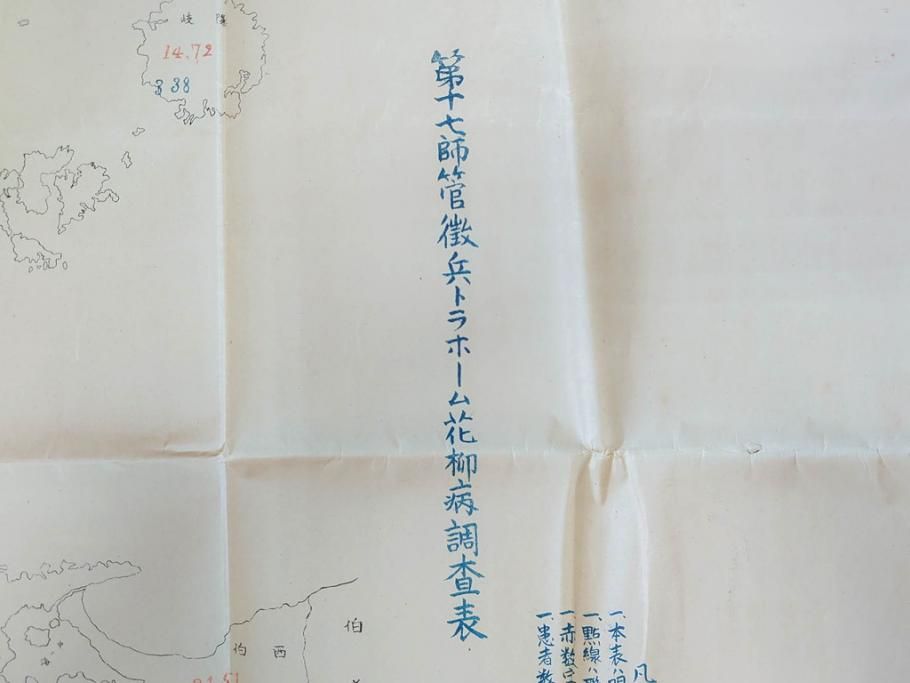 第十七師管徴兵トラホーム花柳病調査表
凡
一、本表ハ明
一、點線ハ
一、赤数字ハ
一、患者数
隠岐
14.72
3.38
中海
西伯
伯